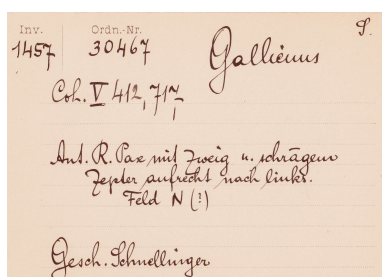 Inv. Ordn.-Nr. S.
1457 30467 Gallienus
Coh. V 412, 717,
1
Ant. R. Pax mit Zweig u. schrägem
Zepter aufrecht nach links.
Feld N (?)
Gesch. Schnellinger